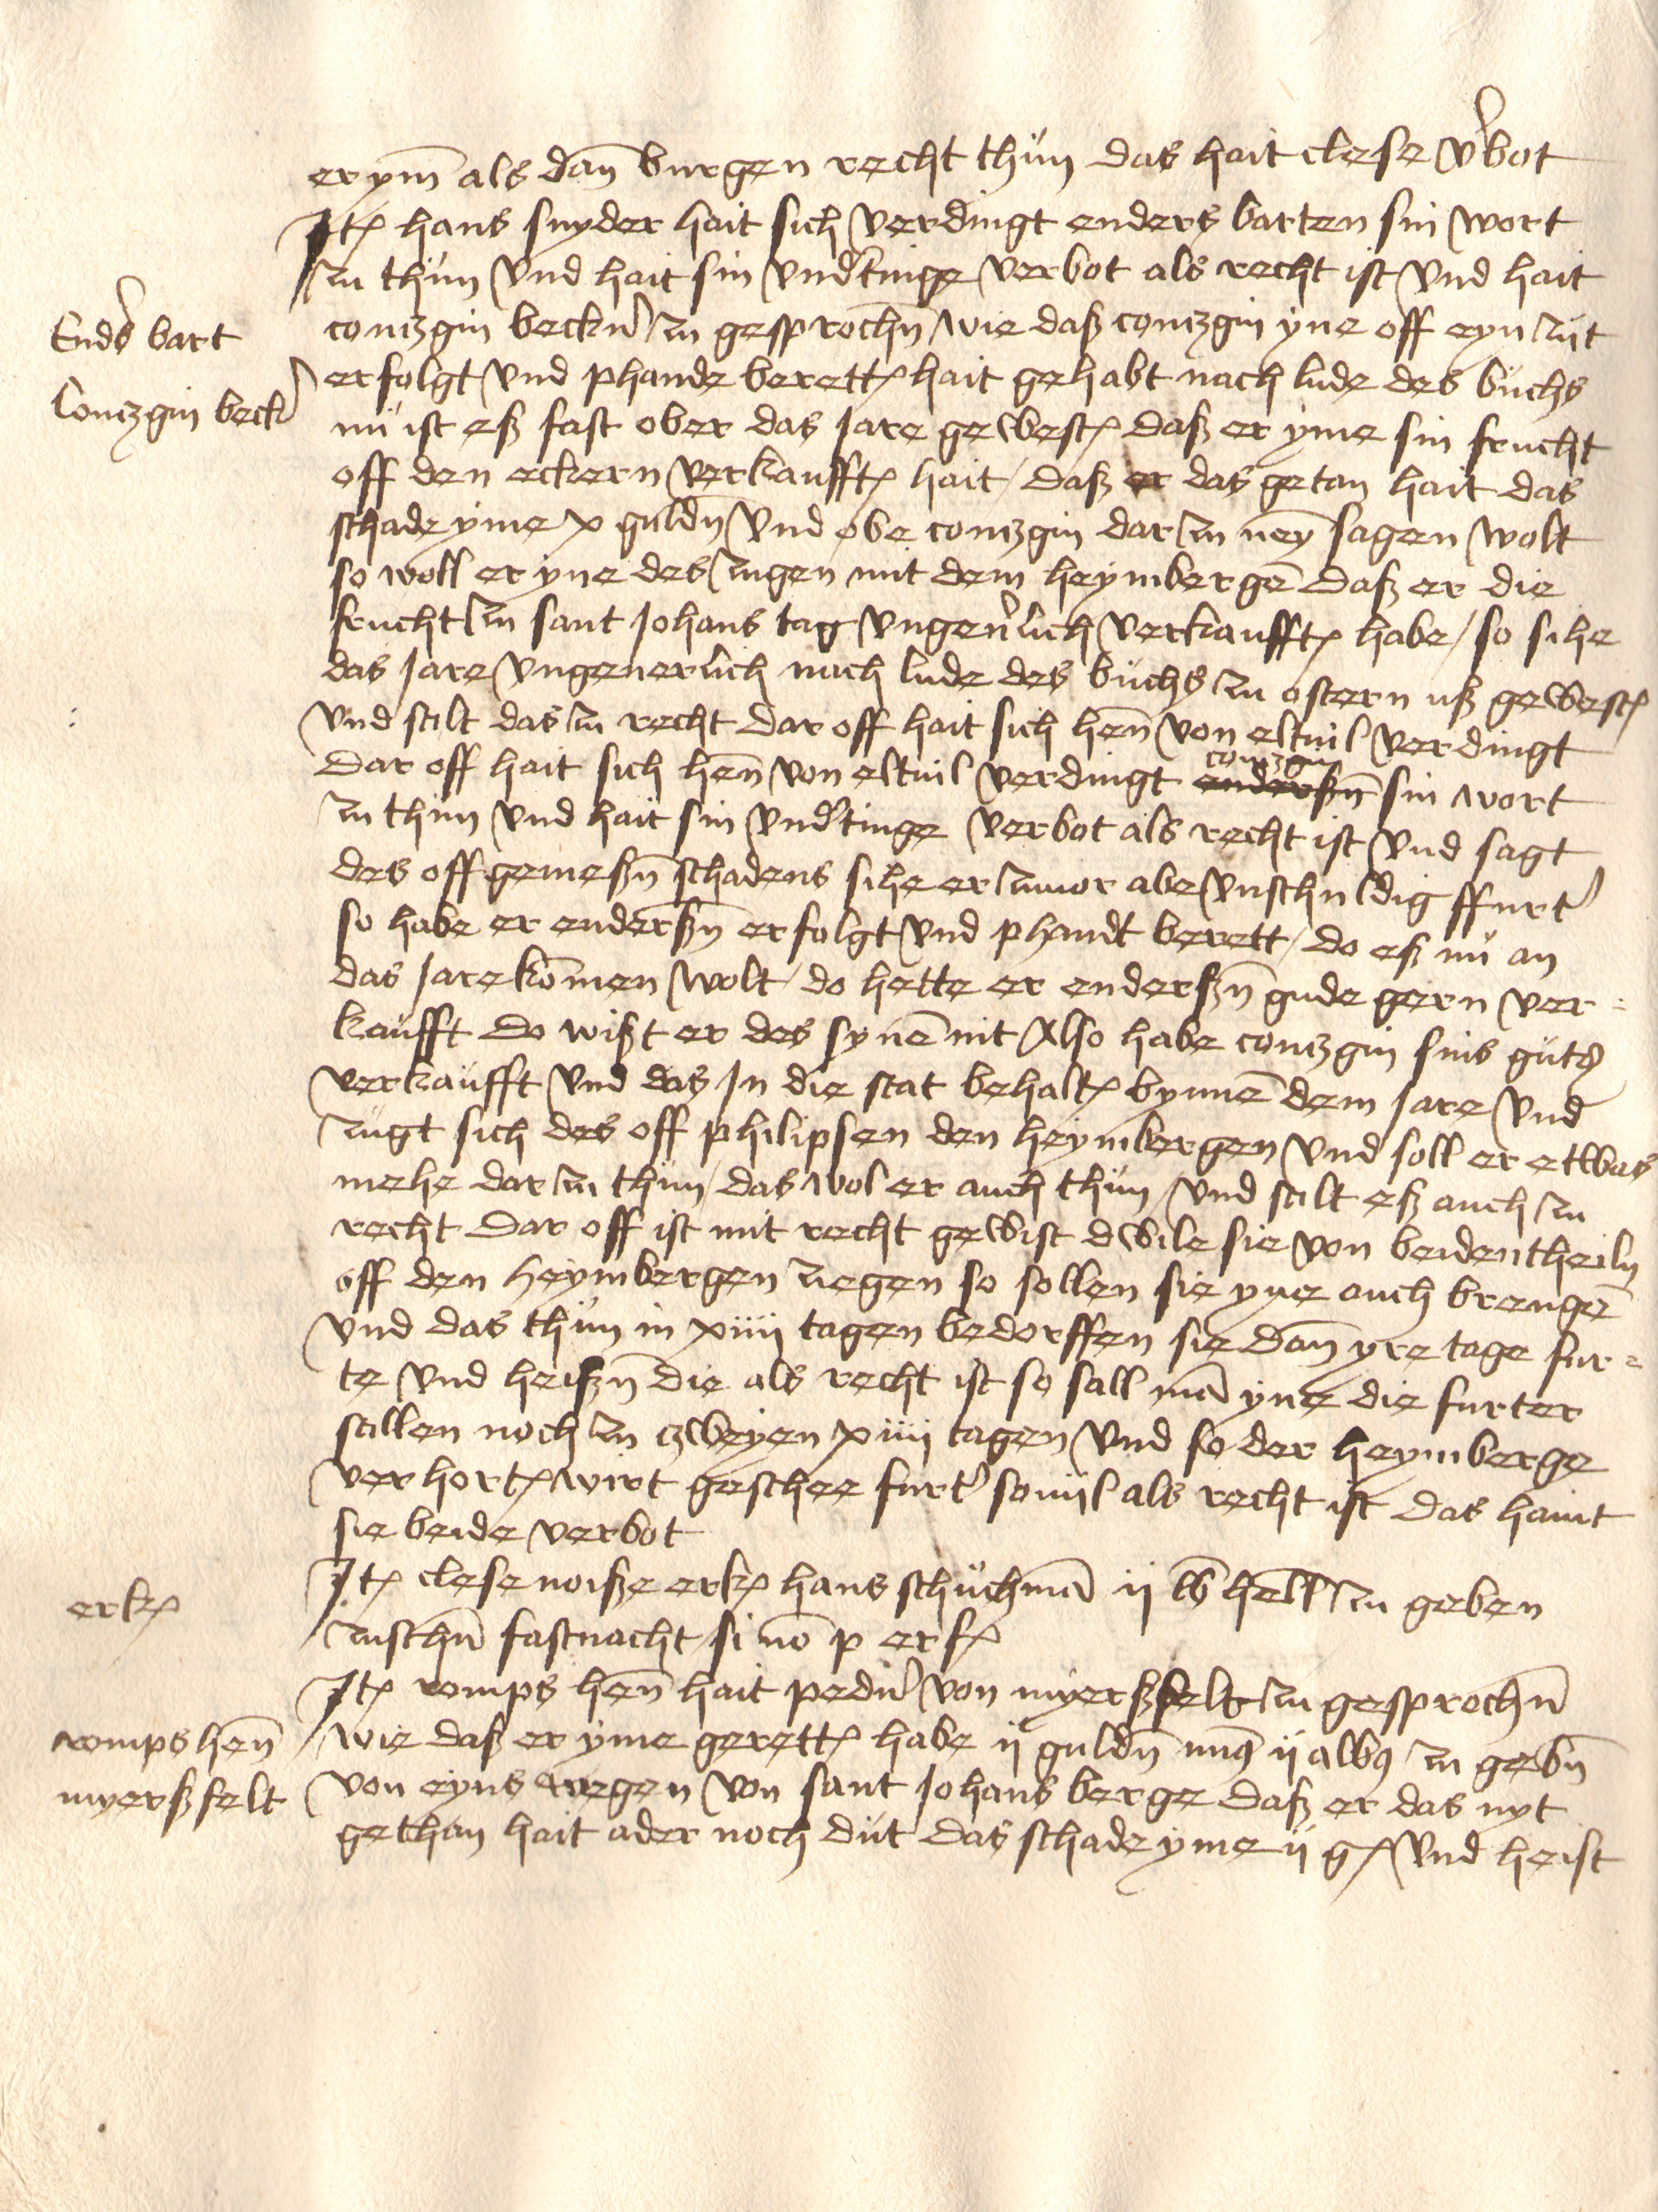 er ym̄ als dan̄ burgen recht thün das hait clese v'bot
Jtē hans snyder hait sich verdingt enders barten sin wort
zu thün vnd hait sin vnd'tinge verbot als recht ist vnd hait
End's bart
contzgin becker zu gesprochn̄ wie daß contzgin yne off eyn zijt
Contzgin beck'
erfolgt vnd phande berettē hait gehabt nach lude des büchs
nü ist eß fast ober das Jare gewestē daß er yme sin frucht
off den eckern verkaufftē hait / daß er das getan hait das
schade yme x guldn̄ vnd obe contzgin dar zu neȳ sagen wolt
so woll er yne des zugen mit dem heymbergē daß er die
frucht zu sant Johans tag vngeu'lich verkaufftē habe / so sihe
das Jare vngeuerlich nach lude des büchs zu ostern uß gewestē
vnd stilt das zu recht dar off hait sich hen̄ von eltuil verdingt
Dar off hait sich hen̄ von eltuil verdingt enderßn̄ contzgin sin wort
zu thun vnd hait sin vnd'tinge verbot als recht ist vnd sagt
des offgemeßn̄ schadens sihe er zuuor abe vnschuldig ffurt'
so habe er enderßn̄ erfolgt vnd phandt berett / do eß nü an
das Jare kōmen wolt / do hette er enderßn̄ gude gern ver=
kaufft do wißt er des synē nit Also habe contzgin sins guts
verkaüfft vnd das Jn die stat behaltē bynnē dem Jare vnd
zugt sich des off philipsen den heymbergen vnd soll er etwas
mehe dar zu thün / das wol er auch thün / vnd stilt eß auch zu
recht Dar off ist mit recht gewist dwile sie von beidentheiln
off den heymbergen ziegen so sollen sie yne auch brengē
vnd das thün in xiiij tagen bedorffen sie dan̄ yre tage fur=
te vnd heißn̄ die als recht ist so sall mā yne die furter
stillen noch zu zweyen xiiij tagen vnd so der heymberge
verhortē wirt geschee furt' souijl als recht ist das haint
sie beide verbot
erkē
Jtē clese noiße erkē hans schüchmā ij lb hell' zu geben
zuschn̄ fastnacht si nō p erfē
Jtē romps hen̄ hait peder von myerßfelt zu gesprochn̄
romps hen̄
wie daß er yme gerettē habe ij guldn̄ mīꝰ ij albꝰ zu gebn̄
myerßfelt
von eyns wegen von sant Johans berge daß er das nyt
gethan hait ader noch düt das schade yme ij gē vnd heist